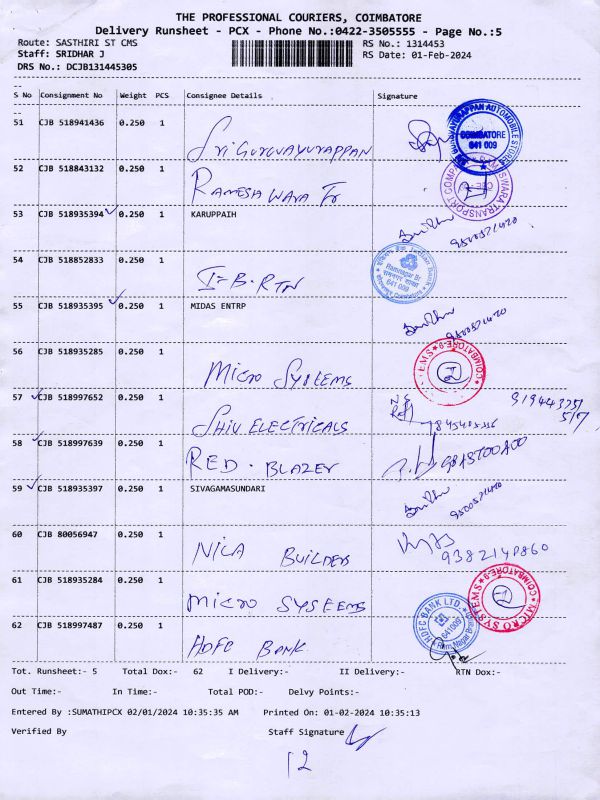 THE PROFESSIONAL COURIERS, COIMBATORE
Delivery Runsheet - PCX - Phone No.:0422-3505555 - Page No.:5
Route: SASTHIRI ST CMS RS No.: 1314453
Staff: SRIDHAR J RS Date: 01-Feb-2024
DRS No.: DCJB131445305
S No Consignment No Weight PCS Consignee Details Signature
51 CJB 518941436 0.250 1 Sri Guruvayurappan
GURUVAYURAPPAN AUTOMOBILE STORES COIMBATORE 641 009
52 CJB 518843132 0.250 1 Rameswara Tr
RAMESWARA TRANSPORT COMPANY
53 CJB 518935394 0.250 1 KARUPPAIH
54 CJB 518852833 0.250 1 I-B.RTN
Indian Bank Ramnagar Br. 641 009 Coimbatore
55 CJB 518935395 0.250 1 MIDAS ENTRP
56 CJB 518935285 0.250 1 Micro Systems
COIMBATORE-9
57 CJB 518997652 0.250 1 SHIV ELECTRICALS
58 CJB 518997639 0.250 1 RED. BLAZER
59 CJB 518935397 0.250 1 SIVAGAMASUNDARI
60 CJB 80056947 0.250 1 NILA BUILDERS
61 CJB 518935284 0.250 1 MICRO SYSTEMS
MICRO SYSTEMS COIMBATORE-9
62 CJB 518997487 0.250 1 HDFC BANK
HDFC BANK LTD. 641009 Ram Nagar Branch
Tot. Runsheet:- 5 Total Dox:- 62 I Delivery:- II Delivery:- RTN Dox:-
Out Time:- In Time:- Total POD:- Delvy Points:-
Entered By :SUMATHIPCX 02/01/2024 10:35:35 AM Printed On: 01-02-2024 10:35:13
Verified By Staff Signature
12